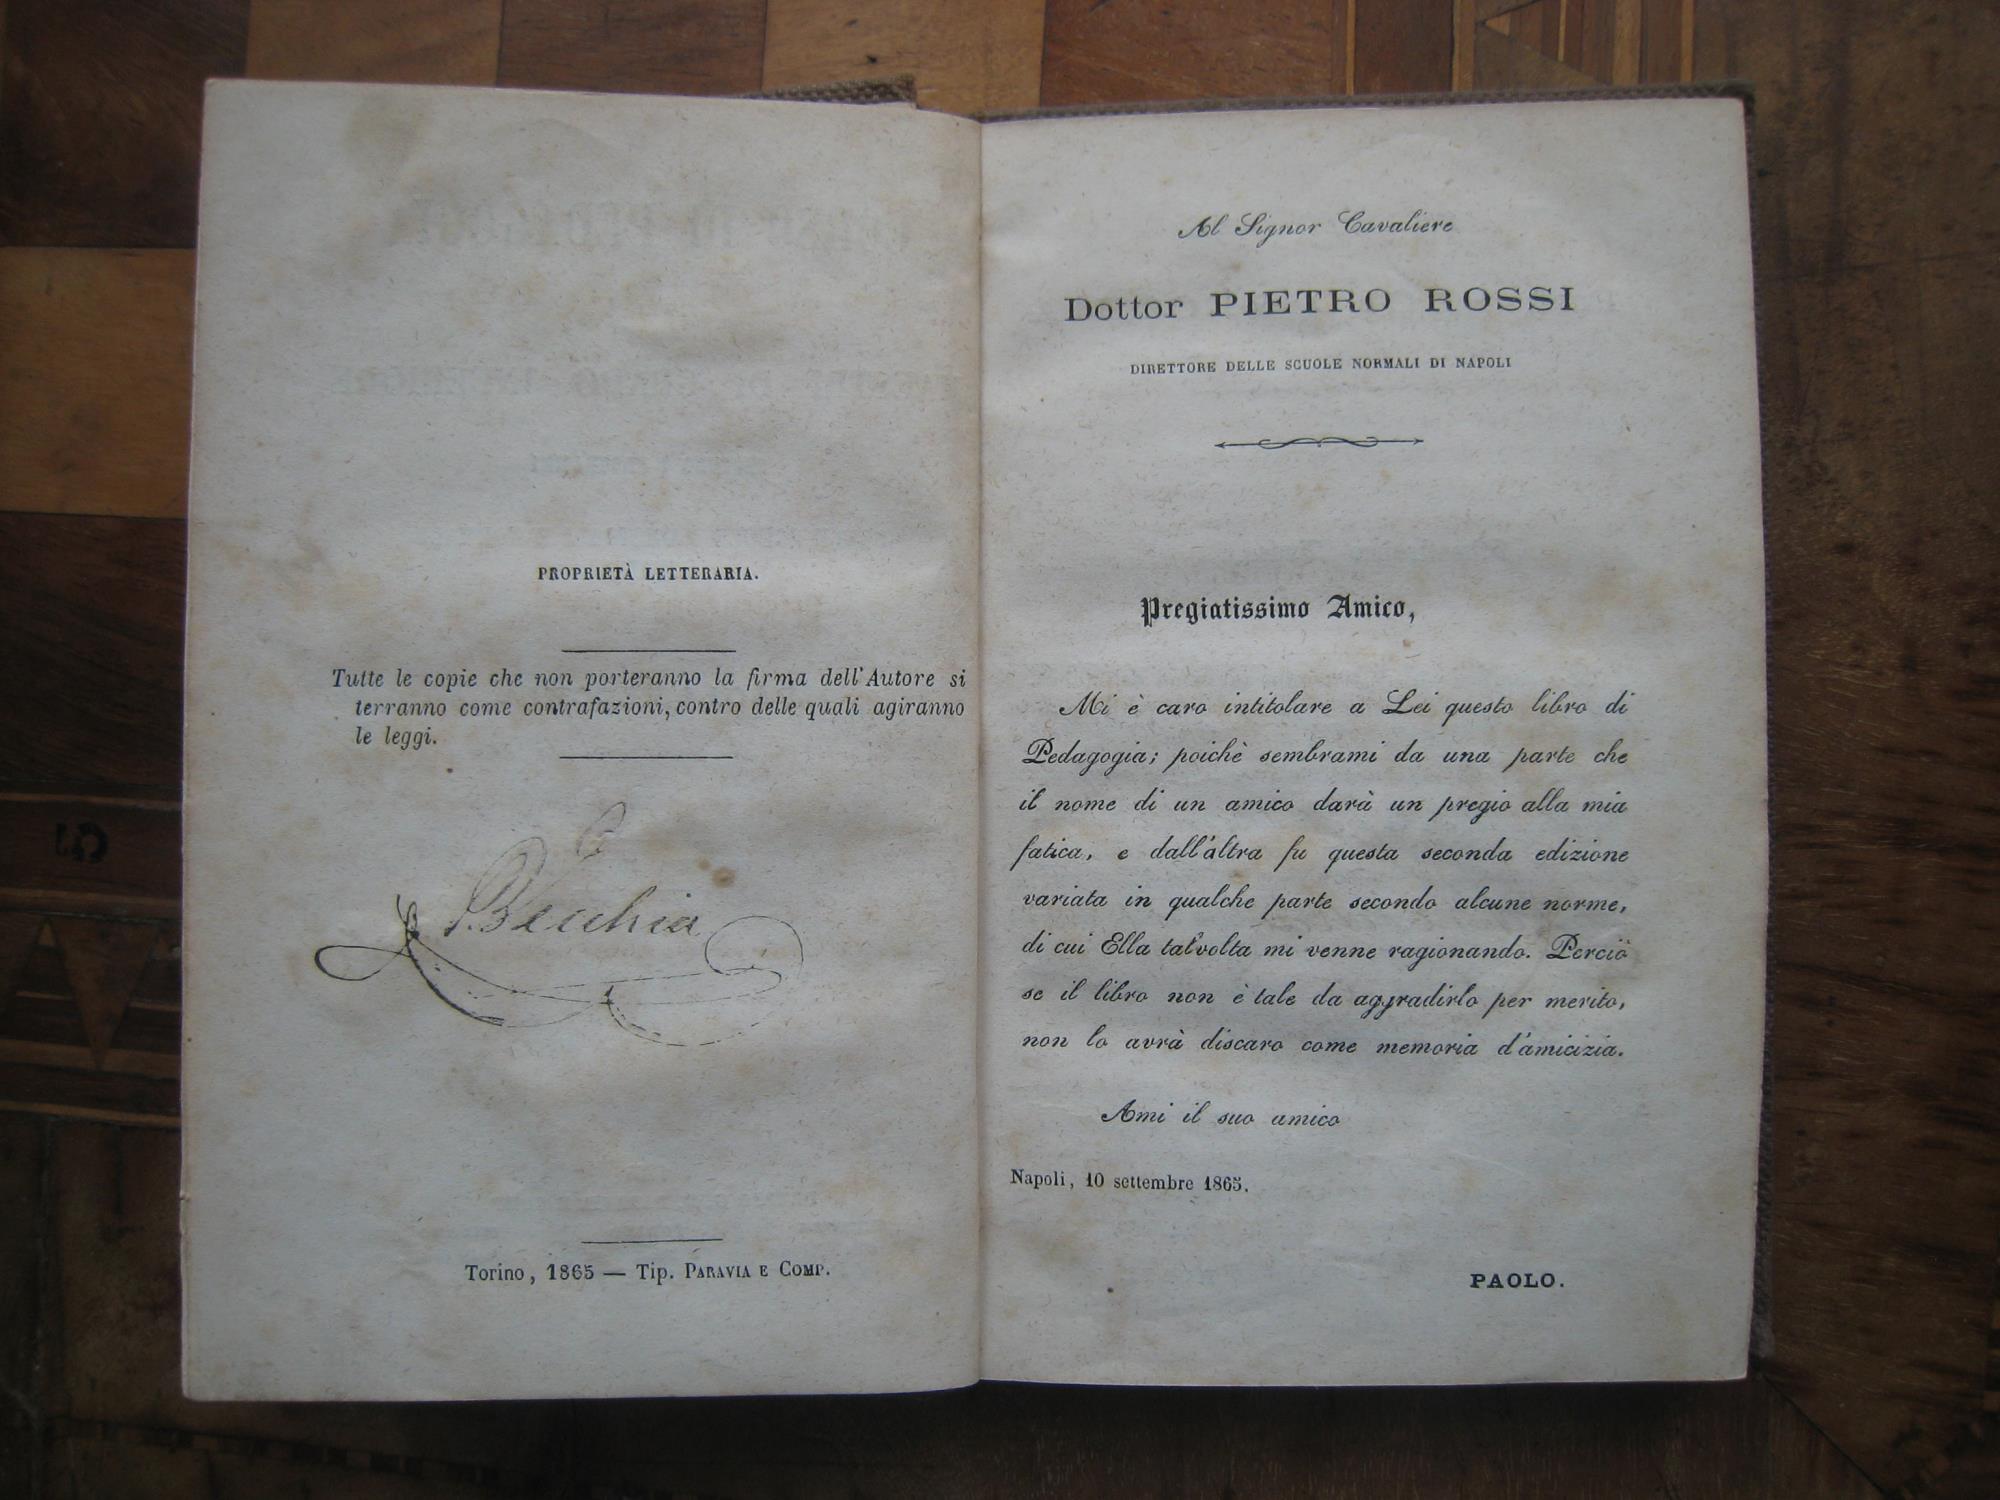 PROPRIETÀ LETTERARIA.
Tutte le copie che non porteranno la firma dell'Autore si
terranno come contrafazioni, contro delle quali agiranno
le leggi.
P. Vecchia
Torino, 1865 — Tip. PARAVIA E COMP.
Al Signor Cavaliere
Dottor PIETRO ROSSI
DIRETTORE DELLE SCUOLE NORMALI DI NAPOLI
Pregiatissimo Amico,
Mi è caro intitolare a Lei questo libro di
Pedagogia; poichè sembrami da una parte che
il nome di un amico darà un pregio alla mia
fatica, e dall'altra fu questa seconda edizione
variata in qualche parte secondo alcune norme,
di cui Ella talvolta mi venne ragionando. Perciò
se il libro non è tale da aggradirlo per merito,
non lo avrà discaro come memoria d'amicizia.
Ami il suo amico
Napoli, 10 settembre 1865.
PAOLO.